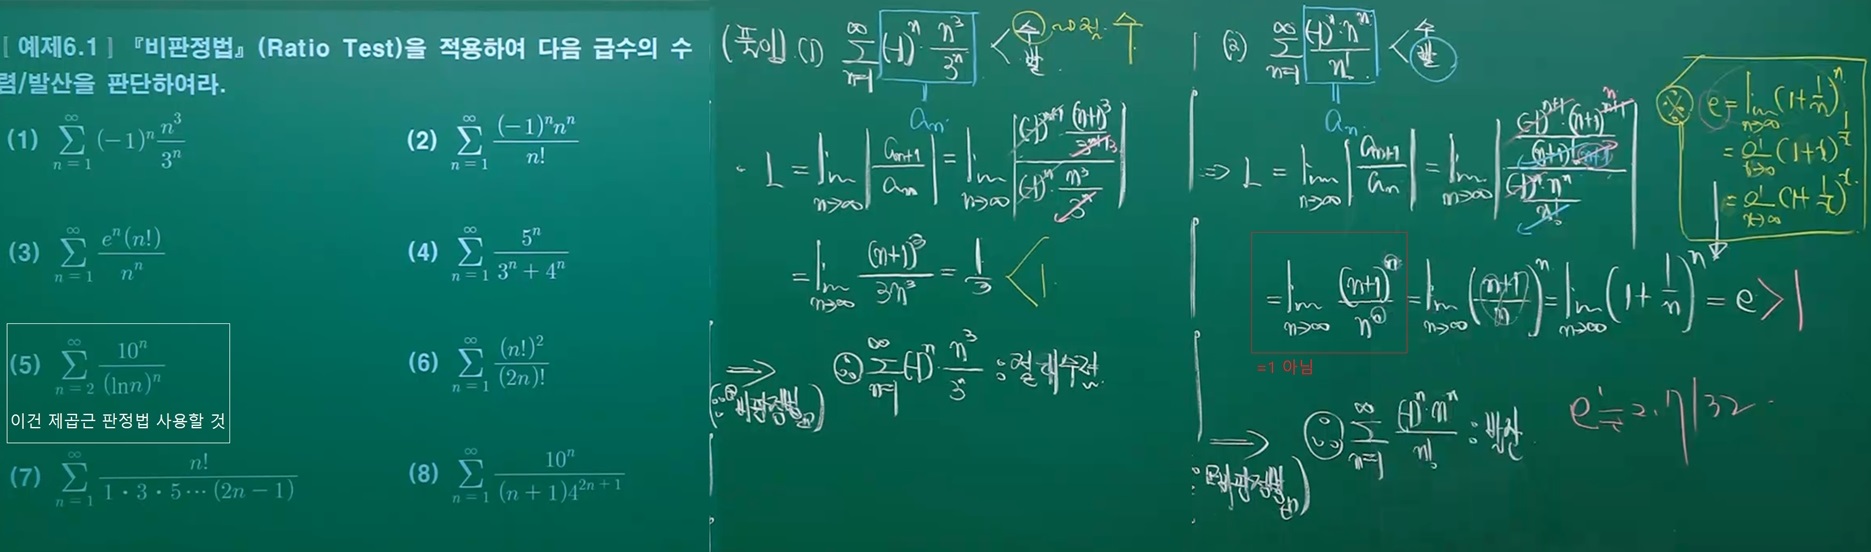 [ 예제6.1 ] 『비판정법』(Ratio Test)을 적용하여 다음 급수의 수
렴/발산을 판단하여라.
(1) ∑_{n=1}^{∞} (-1)^n n^3/3^n
(2) ∑_{n=1}^{∞} (-1)^n n^n/n!
(3) ∑_{n=1}^{∞} e^n(n!)/n^n
(4) ∑_{n=1}^{∞} 5^n/(3^n+4^n)
(5) ∑_{n=2}^{∞} 10^n/(ln n)^n
이건 제곱근 판정법 사용할 것
(6) ∑_{n=1}^{∞} (n!)^2/(2n)!
(7) ∑_{n=1}^{∞} n!/(1・3・5⋯(2n-1))
(8) ∑_{n=1}^{∞} 10^n/((n+1)4^{2n+1})
(풀이) (1) ∑_{n=1}^{∞} (-1)^n · n^3/3^n < 수 발
a_n
L = lim_{n→∞} |a_{n+1}/a_n| = lim_{n→∞} |((-1)^{n+1} · (n+1)^3/3^{n+1})/((-1)^n · n^3/3^n)|
= lim_{n→∞} (n+1)^3/3n^3 = 1/3 < 1
⇒ ∴ ∑_{n=1}^{∞} (-1)^n · n^3/3^n : 절대수렴
(∵ 비판정법)
(2) ∑_{n=1}^{∞} (-1)^n · n^n/n! < 수 발
a_n
⇒ L = lim_{n→∞} |a_{n+1}/a_n| = lim_{n→∞} |((-1)^{n+1} · (n+1)^{n+1}/(n+1)!)/((-1)^n · n^n/n!)|
= lim_{n→∞} (n+1)^n/n^n = lim_{n→∞} ((n+1)/n)^n = lim_{n→∞} (1+1/n)^n = e > 1
=1 아님
⇒ ∴ ∑_{n=1}^{∞} (-1)^n · n^n/n! : 발산
(∵ 비판정법)
※ e = lim_{n→∞} (1+1/n)^n